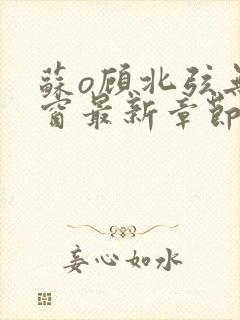 蘇o顾北弦無
窗最新章節
妄心如水